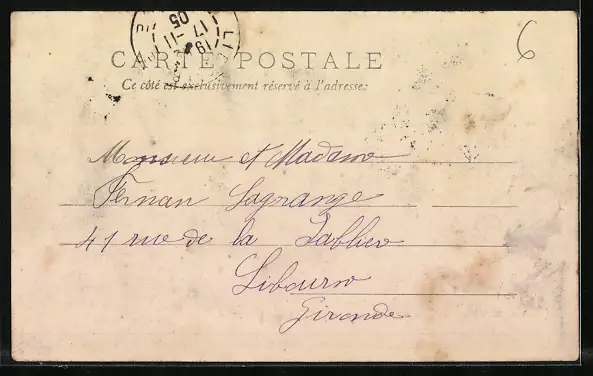 6
LI
19
17 -11
05
CARTE POSTALE
Ce côté est exclusivement réservé à l'adresse:
Monsieur et Madame
Fernan Lagrange
41 rue de la Sablière
Libourne
Gironde